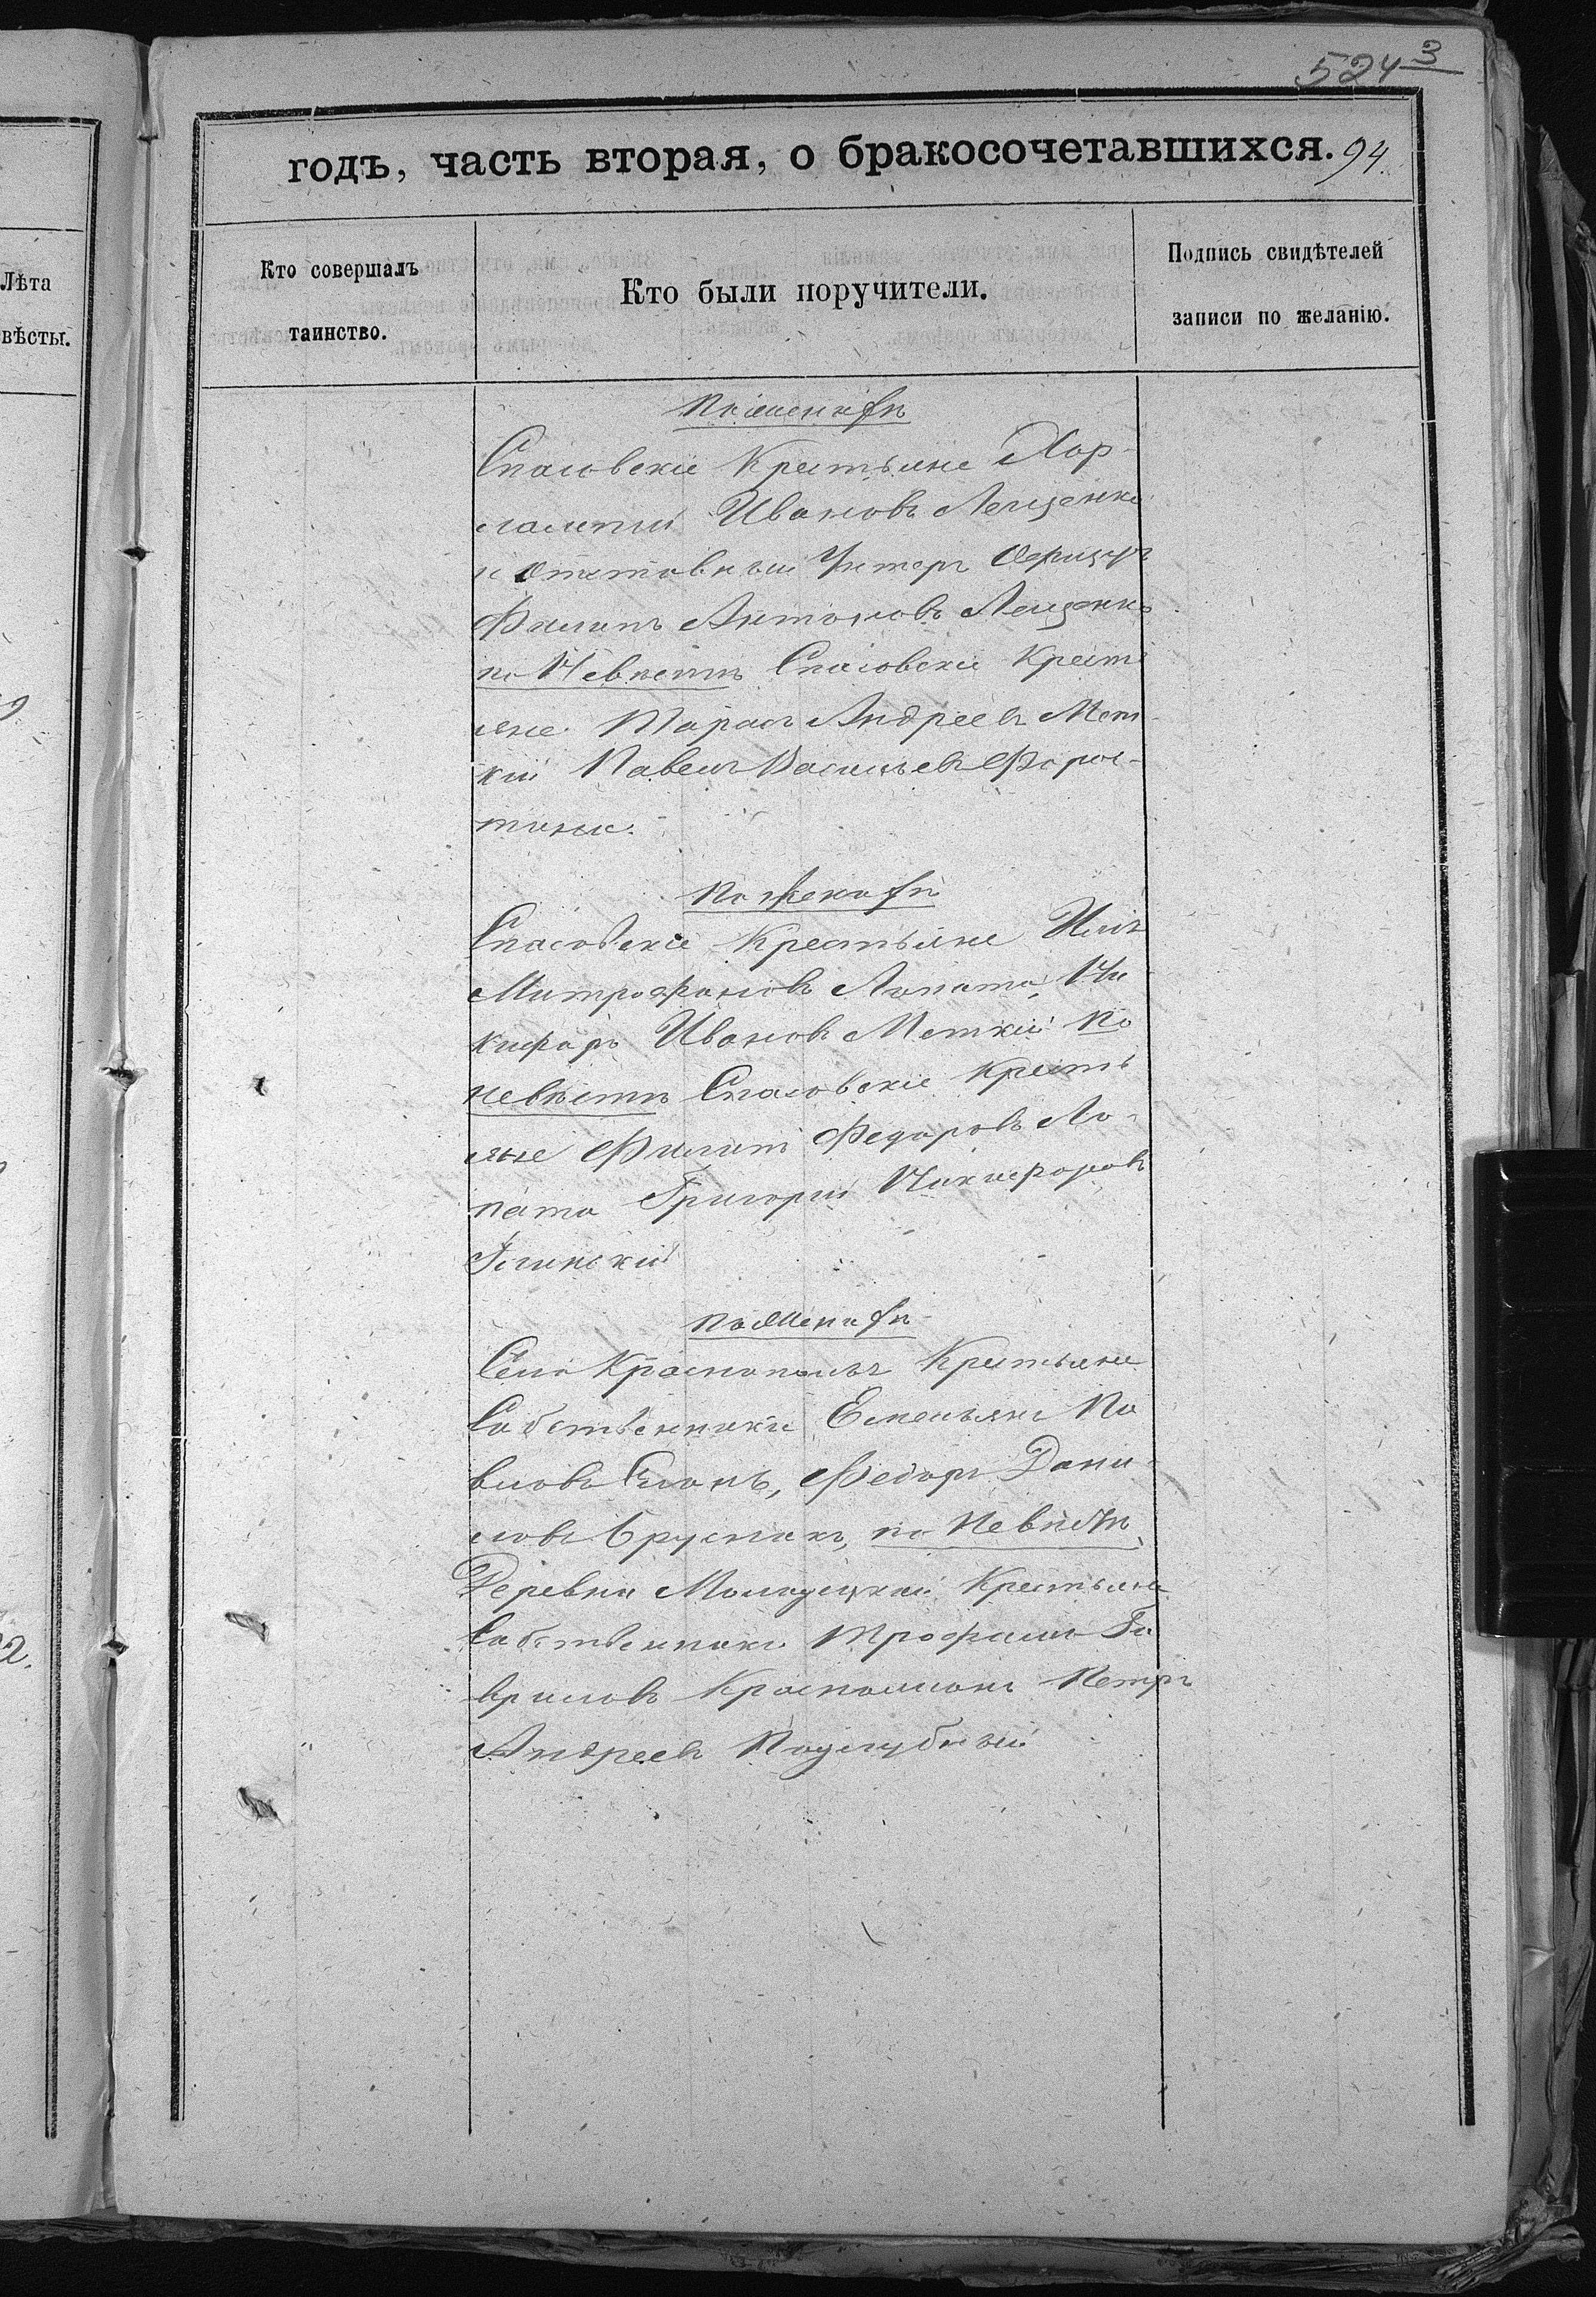 524 3
годъ, часть вторая, о бракосочетавшихся. 94.
Лѣта
вѣсты.
Кто совершалъ
таинство.
Кто были поручители.
Подпись свидѣтелей
записи по желанію.
По женихѣ
Спасовскіе Крестьяне Хар-
лампій Ивановъ Лещенко
и отставный Унтеръ Офицеръ
Филипъ Антоновъ Лещенко
по Невѣстѣ Спасовскіе Кресть
яне Тарасъ Андреевъ
Павелъ Васильевъ Форос-
тина.
По женихѣ
Спасовскіе Крестьяне Илія
Митрофановъ Лопата, Ни
кифоръ Ивановъ По
невѣстѣ Спасовскіе Кресть
яне Филипъ Федоровъ Ло-
пата Григорій Никифоровъ
Глинскій
По Женихѣ
Села Краснополья Крестьяне
Собственники Емельянъ Па
вловъ Слонь, Федоръ Дани-
ловъ Бруснакъ, по Невѣстѣ
Деревни Молодецкой Крестьяне
Собственники Трофимъ Га
вриловъ Петръ
Андреевъ Поддубный